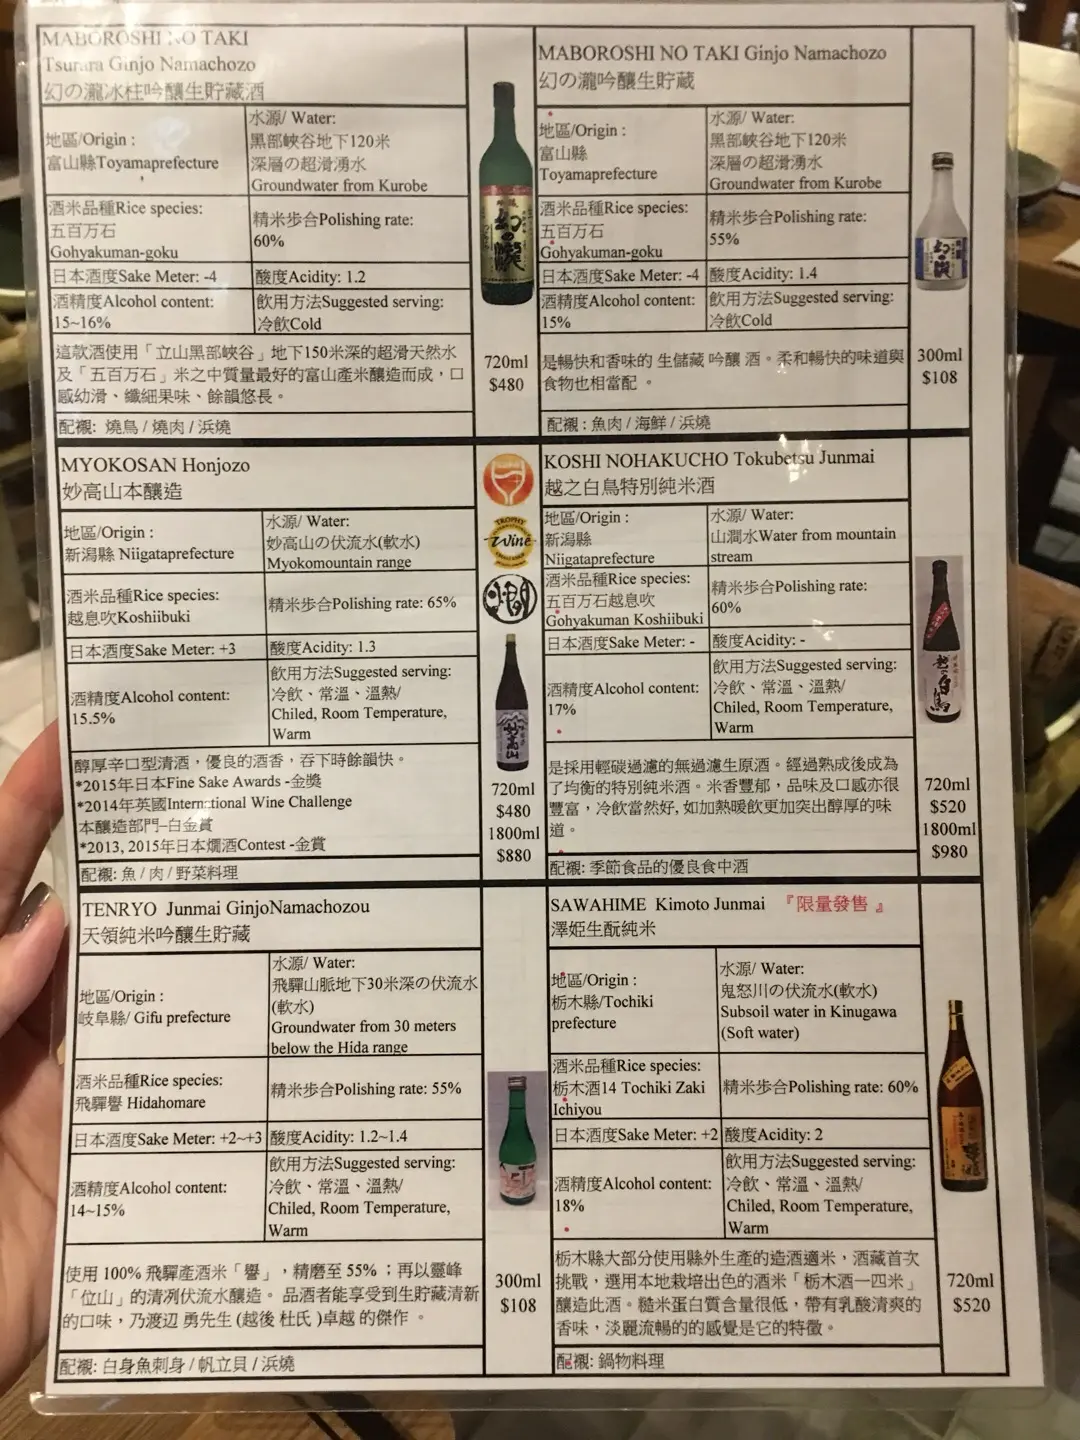 MABOROSHI NO TAKI
Tsurara Ginjo Namachozo
幻の瀧冰柱吟釀生貯藏酒
地區/Origin :
富山縣Toyamaprefecture
水源/ Water:
黑部峽谷地下120米
深層の超滑湧水
Groundwater from Kurobe
酒米品種Rice species:
五百万石
Gohyakuman-goku
精米歩合Polishing rate:
60%
日本酒度Sake Meter: -4
酸度Acidity: 1.2
酒精度Alcohol content:
15~16%
飲用方法Suggested serving:
冷飲Cold
這款酒使用「立山黑部峽谷」地下150米深的超滑天然水
及「五百万石」米之中質量最好的富山產米釀造而成，口
感幼滑、纖細果味、餘韻悠長。
配襯: 燒鳥 / 燒肉 / 浜燒
幻の瀧
720ml
$480
MABOROSHI NO TAKI Ginjo Namachozo
幻の瀧吟釀生貯蔵
地區/Origin :
富山縣
Toyamaprefecture
水源/ Water:
黑部峽谷地下120米
深層の超滑湧水
Groundwater from Kurobe
酒米品種Rice species:
五百万石
Gohyakuman-goku
精米歩合Polishing rate:
55%
日本酒度Sake Meter: -4
酸度Acidity: 1.4
酒精度Alcohol content:
15%
飲用方法Suggested serving:
冷飲Cold
是暢快和香味的 生儲藏 吟釀 酒。柔和暢快的味道與
食物也相當配 。
配襯 : 魚肉 / 海鮮 / 浜燒
幻の瀧
300ml
$108
MYOKOSAN Honjozo
妙高山本釀造
地區/Origin :
新潟縣 Niigataprefecture
水源/ Water:
妙高山の伏流水(軟水)
Myokomountain range
酒米品種Rice species:
越息吹Koshiibuki
精米歩合Polishing rate: 65%
日本酒度Sake Meter: +3
酸度Acidity: 1.3
酒精度Alcohol content:
15.5%
飲用方法Suggested serving:
冷飲、常溫、溫熱/
Chiled, Room Temperature,
Warm
醇厚辛口型清酒，優良的酒香，吞下時餘韻快。
*2015年日本Fine Sake Awards -金獎
*2014年英國International Wine Challenge
本釀造部門–白金賞
*2013, 2015年日本燗酒Contest -金賞
配襯: 魚 / 肉 / 野菜料理
TROPHY
Wine
燗
妙高山
720ml
$480
1800ml
$880
KOSHI NOHAKUCHO Tokubetsu Junmai
越之白鳥特別純米酒
地區/Origin :
新潟縣
Niigataprefecture
水源/ Water:
山澗水Water from mountain
stream
酒米品種Rice species:
五百万石越息吹
Gohyakuman Koshiibuki
精米歩合Polishing rate:
60%
日本酒度Sake Meter: -
酸度Acidity: -
酒精度Alcohol content:
17%
飲用方法Suggested serving:
冷飲、常溫、溫熱/
Chiled, Room Temperature,
Warm
是採用輕碳過濾的無過濾生原酒。經過熟成後成為
了均衡的特別純米酒。米香豐郁，品味及口感亦很
豐富，冷飲當然好, 如加熱暖飲更加突出醇厚的味
道。
配襯: 季節食品的優良食中酒
越の白鳥
720ml
$520
1800ml
$980
TENRYO Junmai GinjoNamachozou
天領純米吟釀生貯藏
地區/Origin :
岐阜縣/ Gifu prefecture
水源/ Water:
飛驒山脈地下30米深の伏流水
(軟水)
Groundwater from 30 meters
below the Hida range
酒米品種Rice species:
飛驒譽 Hidahomare
精米歩合Polishing rate: 55%
日本酒度Sake Meter: +2~+3
酸度Acidity: 1.2~1.4
酒精度Alcohol content:
14~15%
飲用方法Suggested serving:
冷飲、常溫、溫熱/
Chiled, Room Temperature,
Warm
使用 100% 飛驒產酒米「譽」，精磨至 55% ；再以靈峰
「位山」的清冽伏流水釀造。 品酒者能享受到生貯藏清新
的口味，乃渡辺 勇先生 (越後 杜氏 )卓越 的傑作 。
配襯: 白身魚刺身 / 帆立貝 / 浜燒
300ml
$108
SAWAHIME Kimoto Junmai 『限量發售 』
澤姫生酛純米
地區/Origin :
栃木縣/Tochiki
prefecture
水源/ Water:
鬼怒川の伏流水(軟水)
Subsoil water in Kinugawa
(Soft water)
酒米品種Rice species:
栃木酒14 Tochiki Zaki
Ichiyou
精米歩合Polishing rate: 60%
日本酒度Sake Meter: +2
酸度Acidity: 2
酒精度Alcohol content:
18%
飲用方法Suggested serving:
冷飲、常溫、溫熱/
Chiled, Room Temperature,
Warm
栃木縣大部分使用縣外生產的造酒適米，酒藏首次
挑戰，選用本地栽培出色的酒米「栃木酒一四米」
釀造此酒。糙米蛋白質含量很低，帶有乳酸清爽的
香味，淡麗流暢的的感覺是它的特徵。
配襯: 鍋物料理
720ml
$520